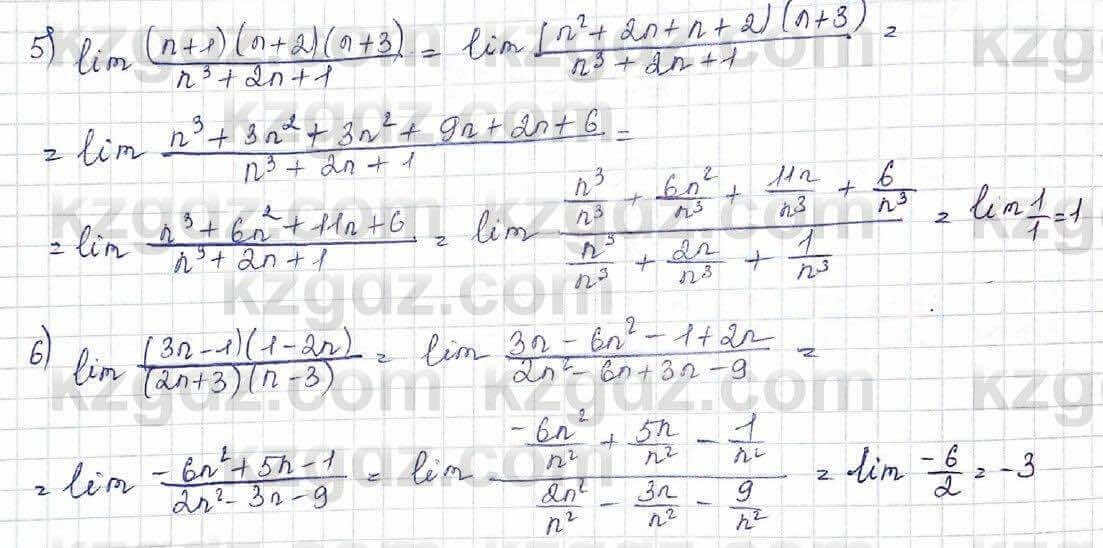 5) lim (n+1)(n+2)(n+3) / n³+2n+1 = lim (n²+2n+n+2)(n+3) / n³+2n+1 =
= lim n³+3n²+3n²+9n+2n+6 / n³+2n+1 =
= lim n³+6n²+11n+6 / n³+2n+1 = lim n³/n³ + 6n²/n³ + 11n/n³ + 6/n³ / n³/n³ + 2n/n³ + 1/n³ = lim 1/1 = 1
6) lim (3n-1)(1-2n) / (2n+3)(n-3) = lim 3n-6n²-1+2n / 2n²-6n+3n-9 =
= lim -6n²+5n-1 / 2n²-3n-9 = lim -6n²/n² + 5n/n² - 1/n² / 2n²/n² - 3n/n² - 9/n² = lim -6/2 = -3
kzgdz.com